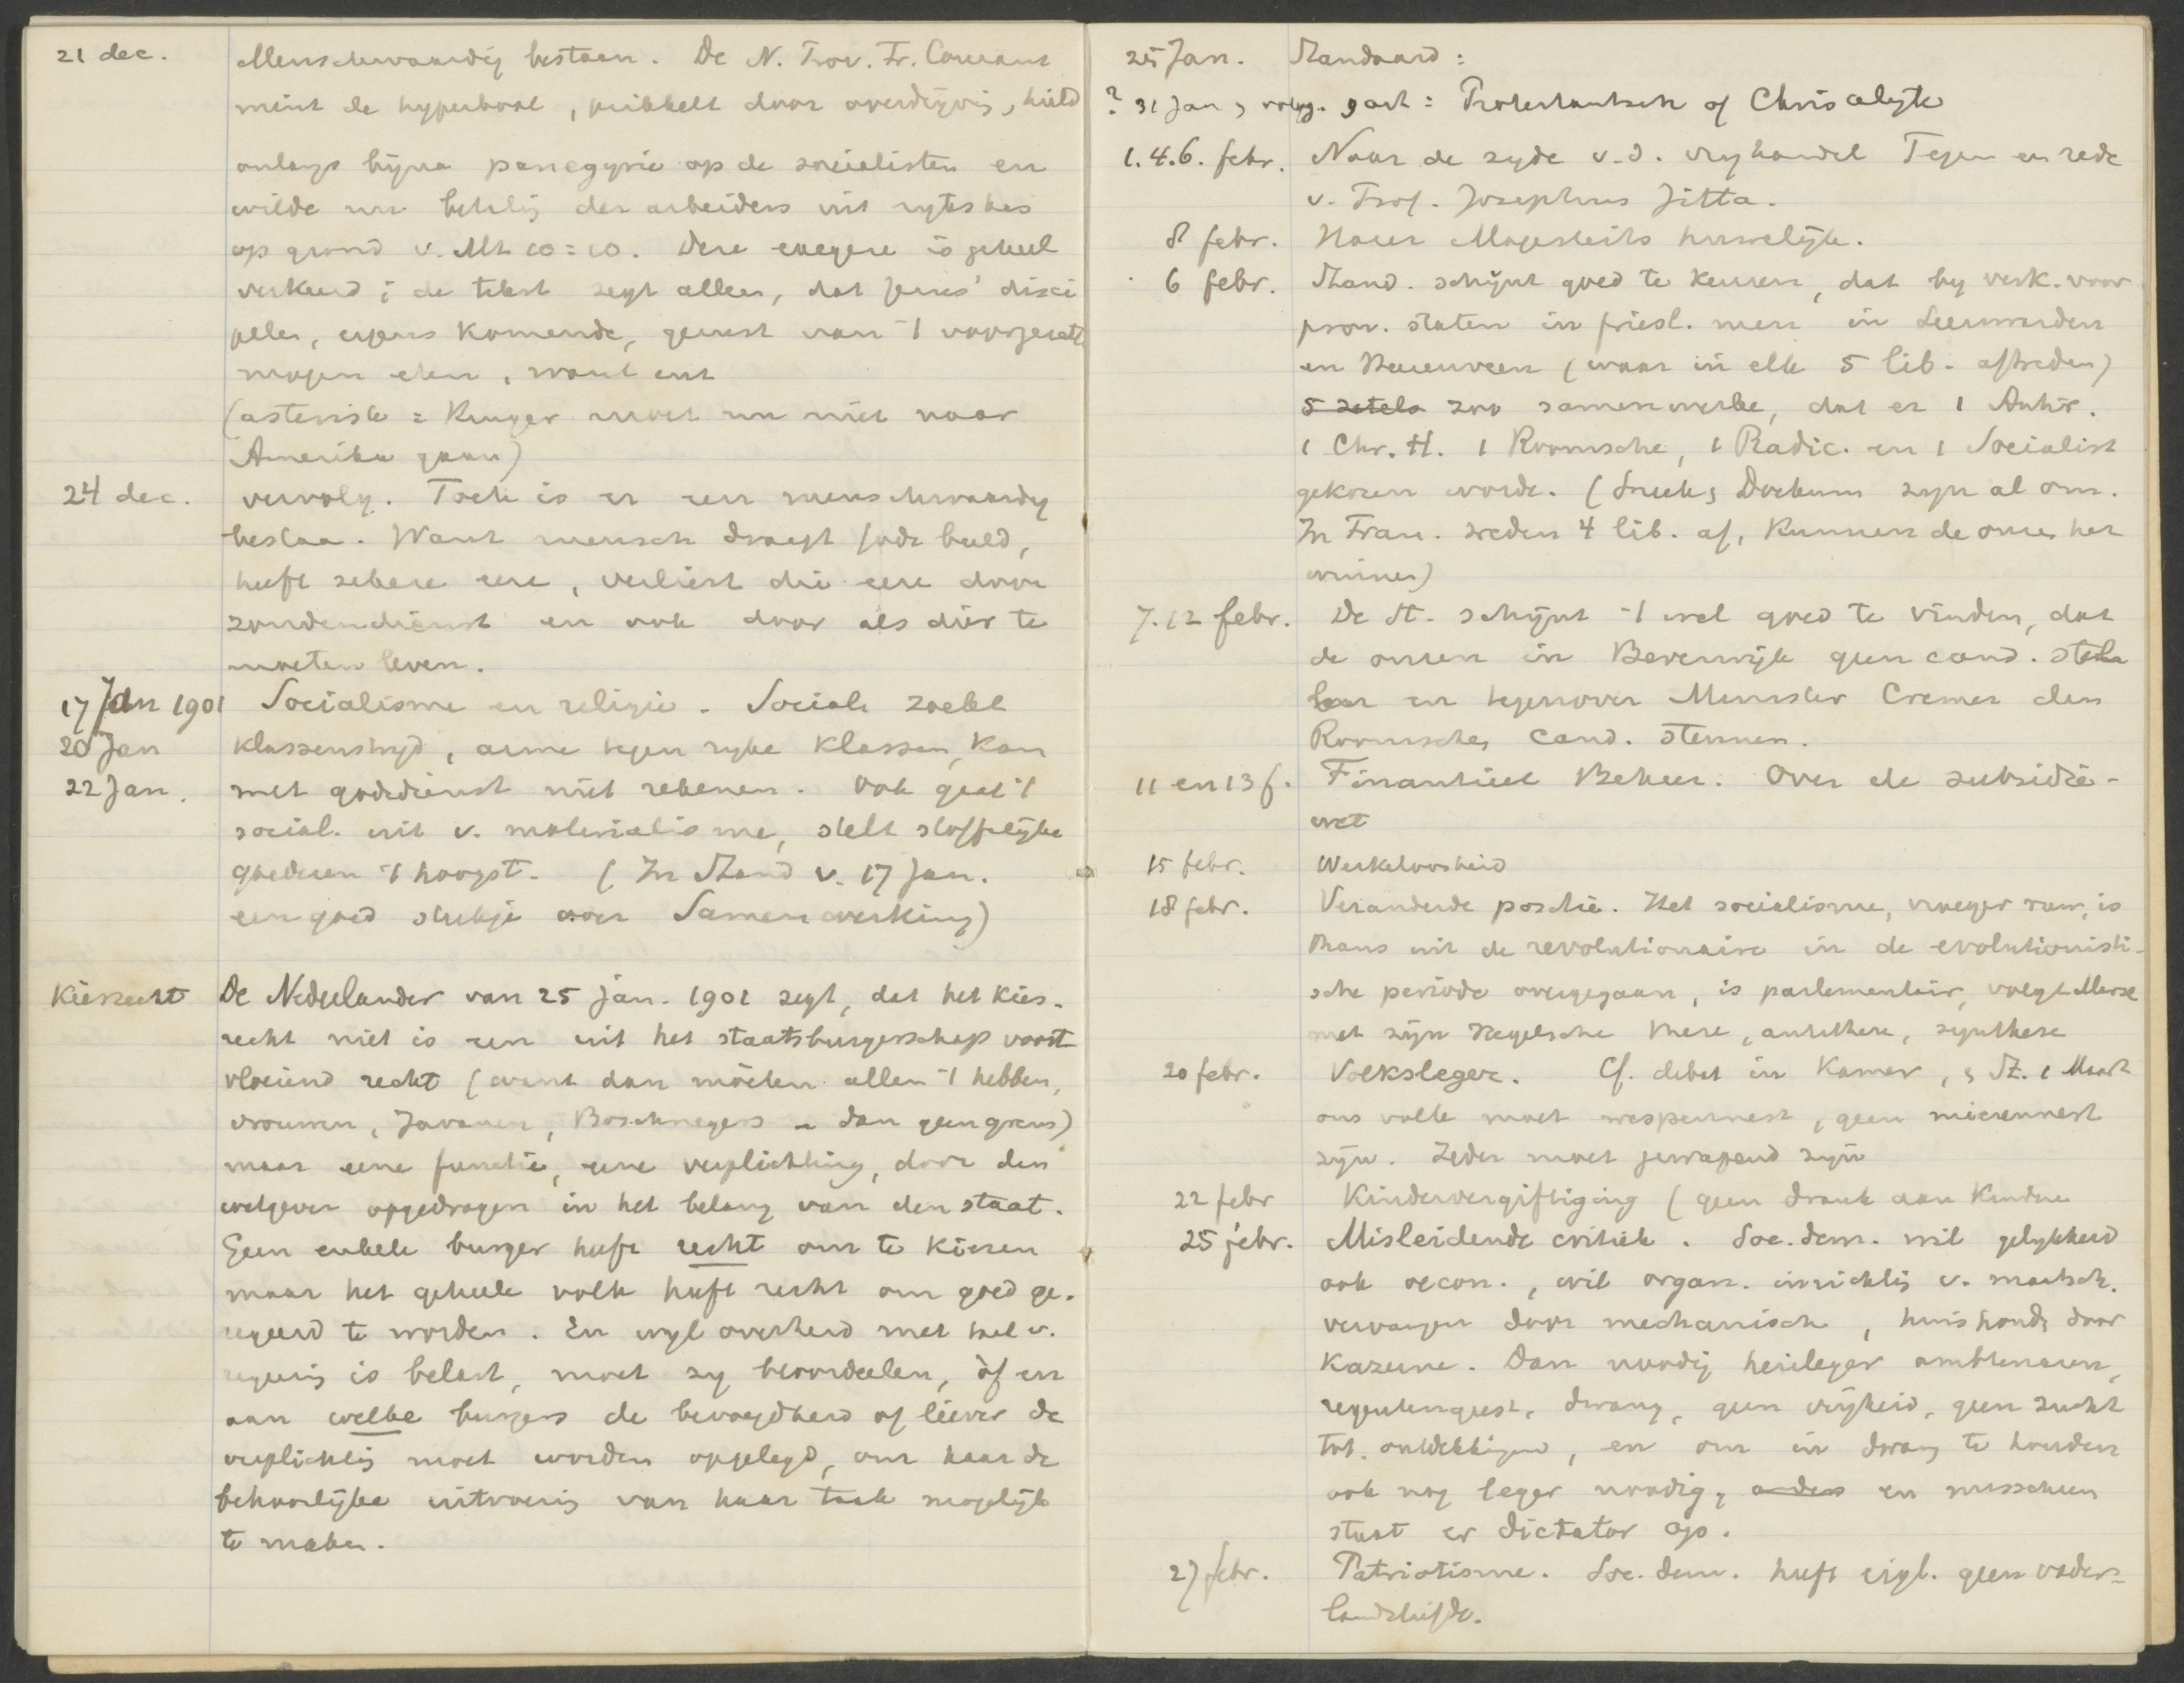 21 dec. Menschwaardig bestaan. De N. Prov. Fr. Courant
mint de hyperbool, prikkelt door overdrijvig, hield
onlangs bijna panegyrie op de socialisten en
wilde nu betalig der arbeiders uit rijkskas
op grond v. Mt 10:10. Deze exegese is geheel
verkeerd; de tekst zegt alleen, dat Jezus' disci
pelen, ergens komende, gerust van 't voorgezett
mogen eten, want enz
(asterisk : Kruger moet nu niet naar
Amerika gaan)
24 dec. vervolg. Toch is er een menschwaardig
bestaa. Want mensch draagt Gods beeld,
heeft zekere eere, verliest die eere door
zondendienst en ook door als dier te
moeten leven.
17 Jan 1901 Socialisme en religie. Sociale zoekt
20 Jan klassenstrijd, arme tegen rijke klassen, kan
22 Jan. met godsdienst niet rekenen. Ook gaat 't
social. uit v. materialisme, stelt stoffelijke
goederen 't hoogst. (In Stand v. 17 Jan.
een goed stukje over Samenwerking)
Kiesrecht De Nederlander van 25 jan. 1901 zegt, dat het kies-
recht niet is een uit het staatsburgerschap voort
vloeiend recht (want dan móeten allen 't hebben,
vrouwen, Javanen, Boschnegers dan geen grens)
maar eene functie, eene verplichting, door den
wetgever opgedragen in het belang van den staat.
Geen enkele burger heeft recht om te kiezen
maar het geheele volk heeft recht om goed ge-
regeerd te worden. En wijl overheid met taak v.
regeerig is belast, moet zij beoordeelen, óf en
aan welke burgers de bevoegdheid of liever de
verplichtig moet worden opgelegd, om haar de
behoorlijke uitvoerig van haar taak mogelijk
te maken.
25 Jan. Standaard:
? 31 Jan, volg. 9 art: Protestantsch of Christelijk
1. 4. 6. febr. Naar de zijde v. d. vrijhandel Tegen en rede
v. Prof. Josephus Jitta.
8 febr. Harer Majesteits huwelijk.
6 febr. Stand. schijnt goed te keuren, dat bij verk. voor
prov. staten in friesl. men in Leeuwarden
en Heerenveen (waar in elk 5 lib. aftreden)
5 zetels zoo samenwerke, dat er 1 Antir.
1 Chr. H. 1 Roomsche, 1 Radic. en 1 Socialist
gekozen worde. (Sneek, Dockum zijn al om.
In Fran. treden 4 lib. af, kunnen de onze het
winnen)
7. 12 febr. De St. schijnt 't wel goed te vinden, dat
de onzen in Beverwijk geen cand. stelen
en tegenover Minister Cremer den
Roomschen cand. steunen.
11 en 13 f. Financieel Beheer. Over de subsidie-
wet
15 febr. Werkeloosheid
18 febr. Veranderde positie. Het socialisme, vroeger ruw, is
thans uit de revolutionaire in de evolutionisti-
sche periode overgegaan, is parlementair, volgt Marx
met zijn Hegelsche these, antithese, synthese
20 febr. Volksleger. Cf. debat in Kamer, St. 1 Maart
ons volk moet wespennest, geen mierennest
zijn. Ieder moet gewapend zijn
22 febr Kindervergiftiging (geen drank aan kinderen
25 febr. Misleidende critiek. Soc. dem. wil gelijkheid
ook oecon., wil organ. inrichtig v. maatsch.
vervangen door mechanisch, huishoudg door
kazerne. Dan noodig heirleger ambtenaren,
regentengeest, dwang, geen vrijheid, geen zucht
tot ontdekkingen, en om in dwang te houden
ook nog leger noodig, anders en misschien
staat er dictator op.
27 febr. Patriotisme. Soc. dem. heeft eigl. geen vader-
landsliefde.